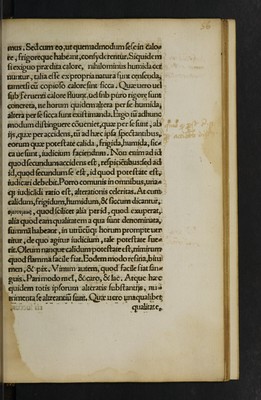 mus. Sed cum eo, ut quemadmodum sese in calo-
re, frigoreque habeant, consyderentur. Siquidem
si exiguo prædita calore, nihilominus humida
nuntur, talia esse ex propria natura sunt censenda,
tametsi cū copioso calore sint sicca. Quæ vero uel
sub feruenti calore fluunt, uel sub puro rigore sunt
concreta, ne horum quidem altera per se humida,
altera per se sicca sunt existimanda. Ergo iū adhunc
modum distinguere cōueniet, quæ per se sunt, ab
ijs, quæ per accidens, tū ad hæc ipsa spectantibus,
eorum quæ potestate calida, frigida, humida, sic-
ca ue sunt, iudicium faciendum. Non enim ad id
quod secundum accidens est, respiciēibus: sed ad
id, quod secundum se est, id quod potestate est,
iudicari debebit. Porro comunis in omnibus,
iudicādi ratio est, alterationis celeritas. At cum
calidum, frigidum, humidum, & siccum dicantur,
quod scilicet alia perid, quod exuperat,
alia quod eam qualitatem a qua sunt denominata,
summā habeant, in utrūcūq; horum prompte uer
titur, de quo agitur iudicium, tale potestate fue-
rit. Oleum nanque calidum potestate est, nimirum
quod flamma facile fiat. Eodem modo resina, bitu
men, & pix. Vinum autem, quod facile fiat san-
guis. Pari modo mel, & caro, & lac. Atque hæc
quidem totis ipsorum alteratis substantijs, nu-
trimenta se alteantiū sunt. Quæ uero unaqualibet
qualitate,